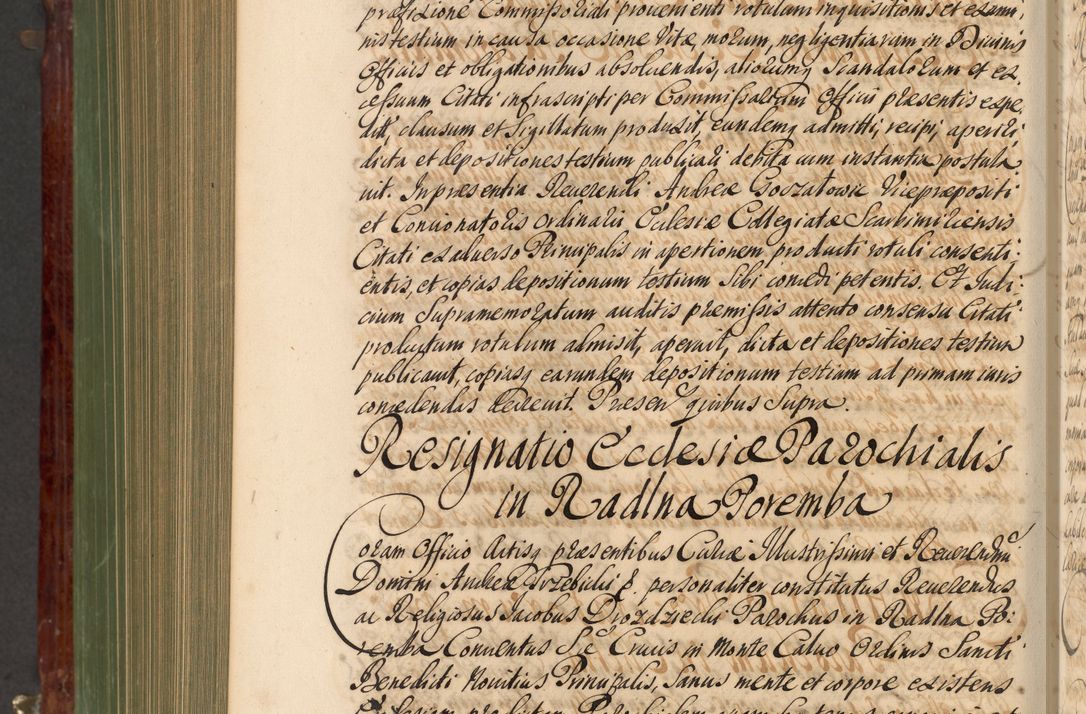 præfixione Commissoriali provenienti rotulum inquisitionis et exami,
nis testium in causa occasione Vitæ, morum, negligentiarum in Divinis
Officiis et obligationibus absolvendis, aliorumq Scandalorum et ex,
cessuum Citati infrascripti per Commissarium Officii præsentis expe
dit, clausum et Sigillatum produxit, eundemq admitti, recipi, aperiri
dicta et depositiones testium publicari debita cum instantia postula
vit. In præsentia Reverendi Andreæ Goczałowic Vicepræpositi
et Concionatoris Ordinarii Ecclesiæ Collegiatæ Scarbimiriensis
Citati ex adverso Principalis in apertionem producti rotuli consenti:
entis, et copias depositionum testium Sibi concedi petentis. Et Judi:
cium Supramemoratum auditis præmissis attento consensu Citati
productum rotulum admisit, aperuit, dicta et depositiones testium
publicavit, copiasq earundem depositionum testium ad primam iuris
concedendas decrevit. Præsen quibus Supra.
Resignatio Ecclesiæ Parochialis
in Radlna Poremba
Coram Officio Actisq præsentibus Curiæ Illustrissimi et Reverendmi
Domini Andreæ Trzebicki &. personaliter constitutus Reverendus
ac Religiosus Jacobus Drozdzecki Parochus in Radlna Po:
remba Conventus S:æ Crucis in Monte Calvo Ordinis Sancti
Benedicti Novitius Principalis, Sanus mente et corpore existens